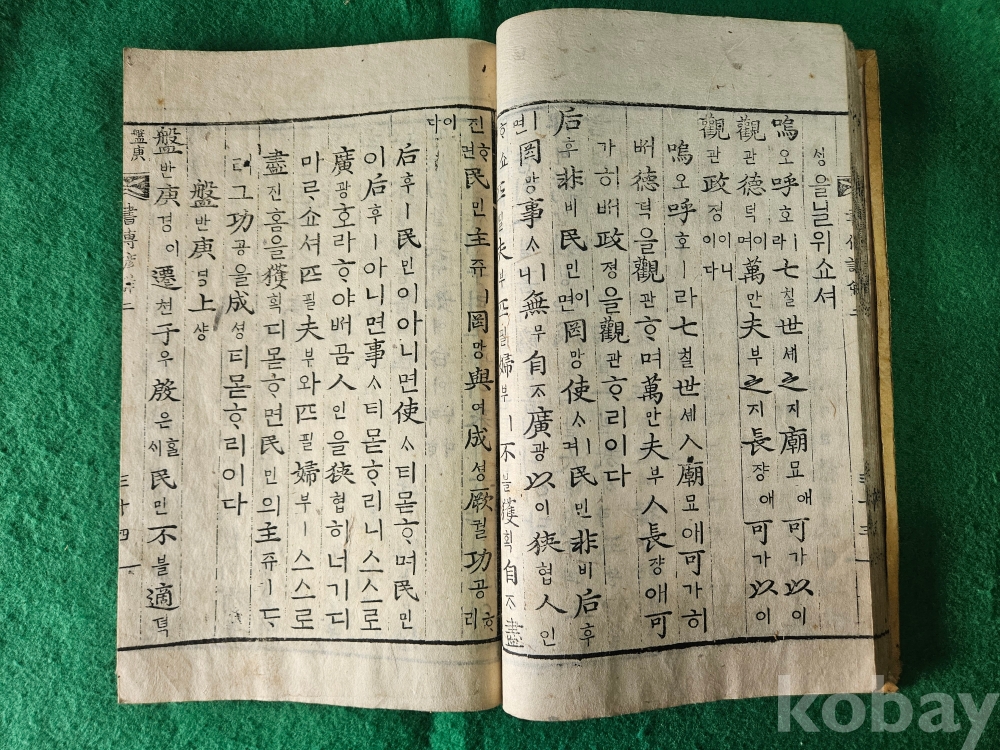 셩을닐위쇼셔
嗚오呼호라ㅣ七칠世세之지廟묘애可가以이
觀관德덕이며萬만夫부之지長쟝애可가以이
觀관政졍이니이다
嗚오呼호ㅣ라七칠世셰ㅅ廟묘애可가히
ᄡᅥ德덕을觀관ᄒᆞ며萬만夫부ㅅ長쟝애可
가히ᄡᅥ政졍을觀관ᄒᆞ리이다
后후非비民민이면罔망使ᄉᆞㅣ며民민非비后후
ㅣ면罔망事ᄉᆞㅣ니無무自ᄌᆞ廣광以이狹협人인
ᄒᆞ쇼셔匹필夫부匹필婦부ㅣ不블獲획自ᄌᆞ盡
진ᄒᆞ면民민主쥬ㅣ罔망與여成셩厥궐功공ᄒᆞ리
이다
后후ㅣ民민이아니면使ᄉᆞ티몯ᄒᆞ며民민
이后후ㅣ아니면事ᄉᆞ티몯ᄒᆞ리니스스로
廣광호라ᄒᆞ야ᄡᅥ곰人인을狹협히너기디
마ᄅᆞ쇼셔匹필夫부와匹필婦부ㅣ스스로
盡진홈을獲획디몯ᄒᆞ면民민의主쥬ㅣᄃᆞ
려그功공을成셩티몯ᄒᆞ리이다
盤반庚경上샹
盤반庚경이遷쳔于우殷은ᄒᆞᆯᄉᆡ民민不블適뎍
盤庚 書傳諺解二 三十四
kobay